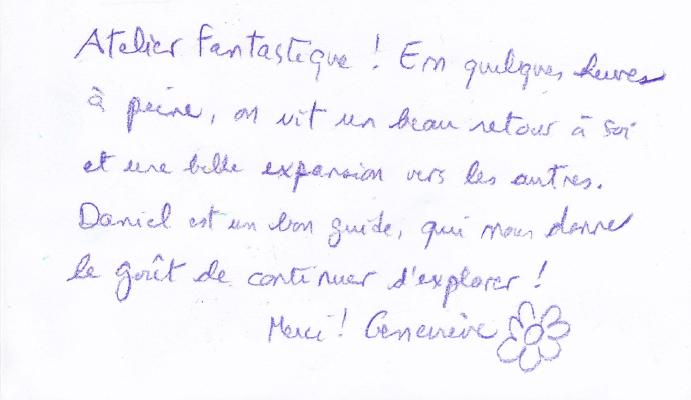 Atelier fantastique ! En quelques heures
à peine, on vit un beau retour à soi
et une belle expansion vers les autres.
Daniel est un bon guide, qui nous donne
le goût de continuer d'explorer !
Merci ! Geneviève